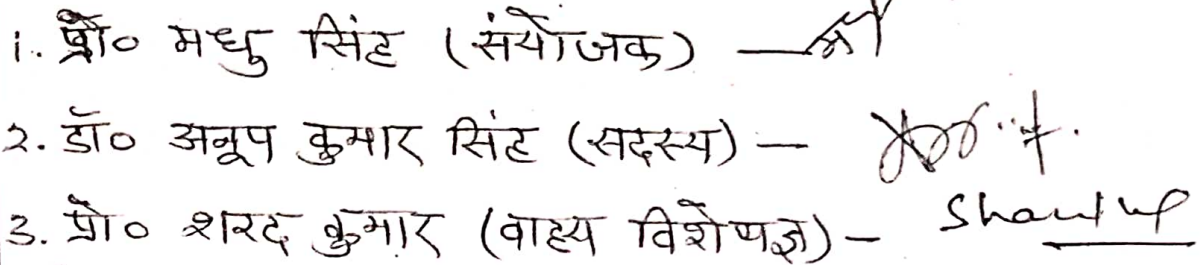 1. प्रो० मधु सिंह (संयोजक) —
2. डॉ० अनूप कुमार सिंह (सदस्य) —
3. प्रो० शरद कुमार (वाह्य विशेषज्ञ) —